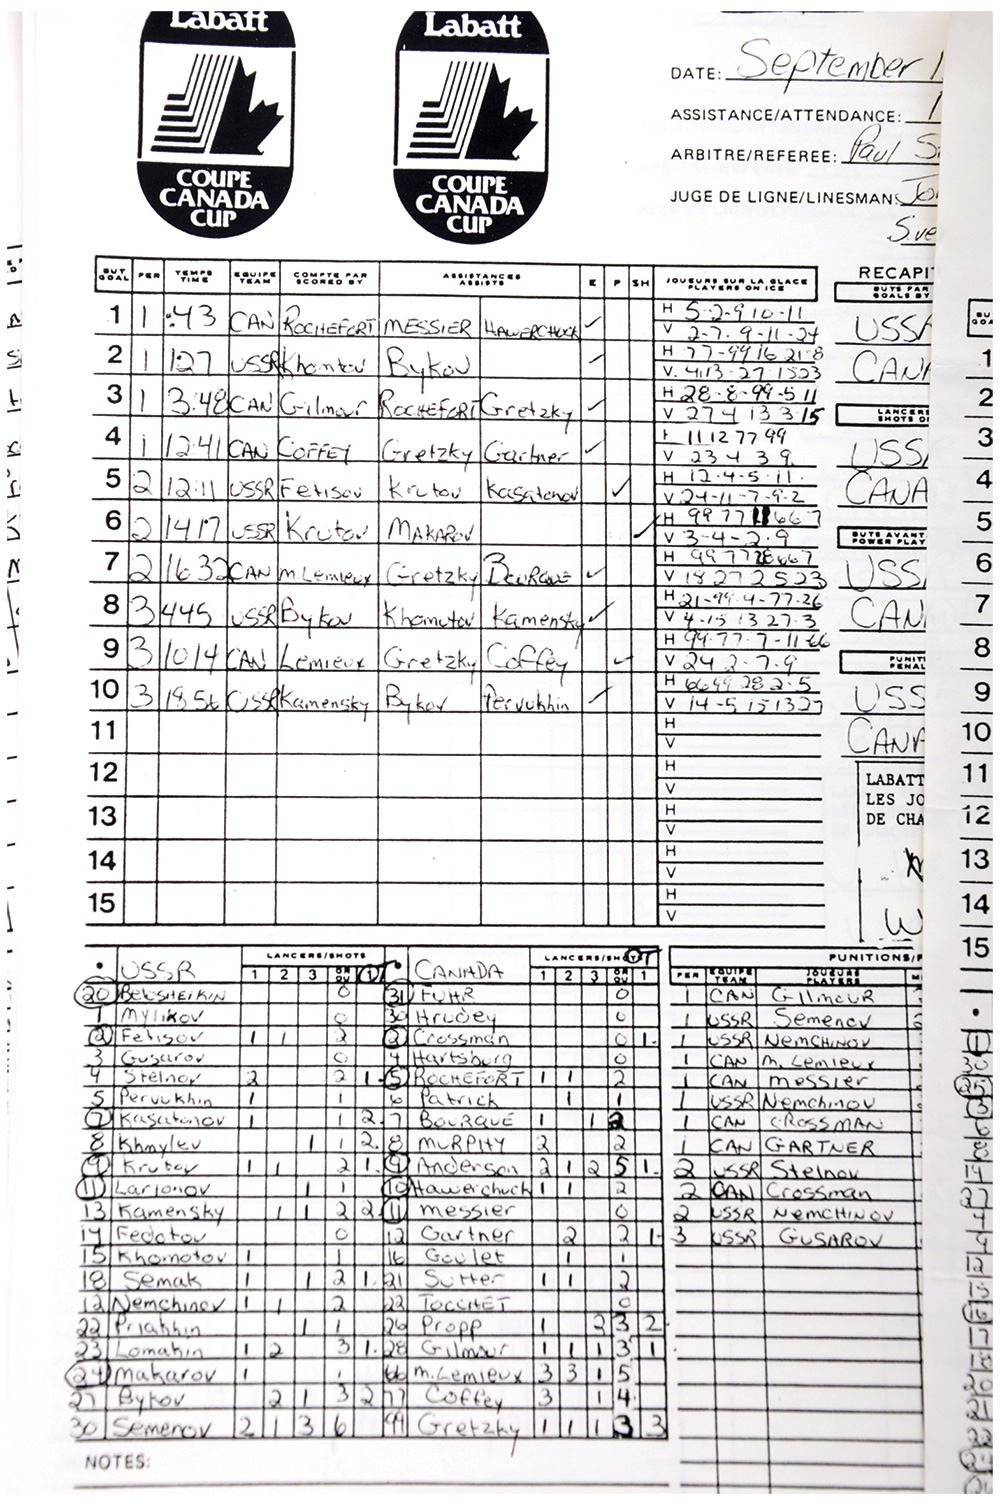 Labatt
COUPE
CANADA
CUP
Labatt
COUPE
CANADA
CUP
DATE: September 1
ASSISTANCE/ATTENDANCE: 1
ARBITRE/REFEREE: Paul
JUGE DE LIGNE/LINESMAN:
Sve
BUT GOAL PER TEMPS TIME EQUIPE TEAM COMPTE PAR SCORED BY ASSISTANCES ASSISTS E P SH JOUEURS SUR LA GLACE PLAYERS ON ICE
1 1 :43 CAN ROCHEFORT MESSIER HAWERCHUCK ✓ H 5-2-9 10-11
V 2-7-9-11-24
2 1 1:27 USSR Khomtov Bykov ✓ H 77-99 16 21-8
V. 4 13-27-15 23
3 1 3:48 CAN Gilmour ROCHEFORT Gretzky ✓ H 28-8-99-5 11
V 27 4 13 3 15
4 1 12:41 CAN COFFEY Gretzky Gartner ✓ H 11 12 77 99
V 23 4 3 9
5 2 12:11 USSR Fetisov Krutov Kasatonov ✓ H 12-4-5-11.
V 24-11-7-9-2
6 2 14 17 USSR Krutov MAKAROV ✓ H 99 77 11 66 7
V 3-4-2-9
7 2 16 32 CAN M Lemieux Gretzky BOURQUE ✓ H 99 77 28 66 7
V 18 27 2 5 23
8 3 445 USSR Bykov Khomutov Kamensky ✓ H 21-99-4-77-26
V 4-15 13 27-3
9 3 1014 CAN Lemieux Gretzky Coffey ✓ H 99-77-7-11-66
V 24 2-7-9
10 3 18 56 USSR Kamensky Bykov Pervukhin ✓ H 66 99 28 2-5
V 14-5 15 13 27
11 H
V
12 H
V
13 H
V
14 H
V
15 H
V
RECAPI
BUTS PAR
GOALS BY
USSR
CANA
LANCERS
SHOTS O
USSR
CANA
BUTS AVANT
POWER PLAY
USSR
CANA
PUNITI
PENAL
USSR
CANA
LABATT
LES JO
DE CHA
W
BU
GO
1
2
3
4
5
6
7
8
9
10
11
12
13
14
15
• USSR LANCERS/SHOTS 1 2 3 OT
20 Belosheikin 0
1 Mylikov 0
2 Fetisov 1 1 2
3 Gusarov 0
4 Stelnov 2 2 1.
5 Pervukhin 1 1
7 Kasatonov 1 1 2.
8 Khmylev 1 1 2.
9 Krutov 1 1 2 1.
11 Larionov 1 1
13 Kamensky 1 1 2 2
14 Fedotov 0
15 Khomotov 1 1
18 Semak 1 1 2 1.
12 Nemchinov 1 1 2
22 Priakhin 1 1
23 Lomakin 1 2 3 1.
24 Makarov 1 1
27 Bykov 2 1 3 2
30 Semenov 2 1 3 6
• CANADA LANCERS/SHOTS 1 2 3 OT 1
31 FUHR 0
30 Hrudey 0
2 Crossman 0 1.
4 Hartsburg 0
5 ROCHEFORT 1 1 2
6 Patrick 1 1
7 BOURQUE 1 1 2
8 MURPHY 2 2
9 Anderson 2 1 2 5 1.
10 Hawerchuck 1 1 2
11 messier 0
12 Gartner 2 2 1.
16 Goulet 1 1
21 Sutter 1 1 2
22 TOCCHET 0
26 Propp 1 2 3 2
28 Gilmour 1 1 1 3 1
66 M.Lemieux 3 3 1 5
77 Coffey 3 1 4
99 Gretzky 1 1 1 3 3
PUNITIONS/P
PER EQUIPE TEAM JOUEURS PLAYERS
1 CAN GilmouR
1 USSR Semenov
1 USSR NEMCHINOV
1 CAN M. Lemieux
1 CAN messier
1 USSR Nemchinov
1 CAN CROSSMAN
1 CAN GARTNER
2 USSR Stelnov
2 CAN Crossman
2 USSR NEMCHINOV
3 USSR GUSAROV
NOTES: